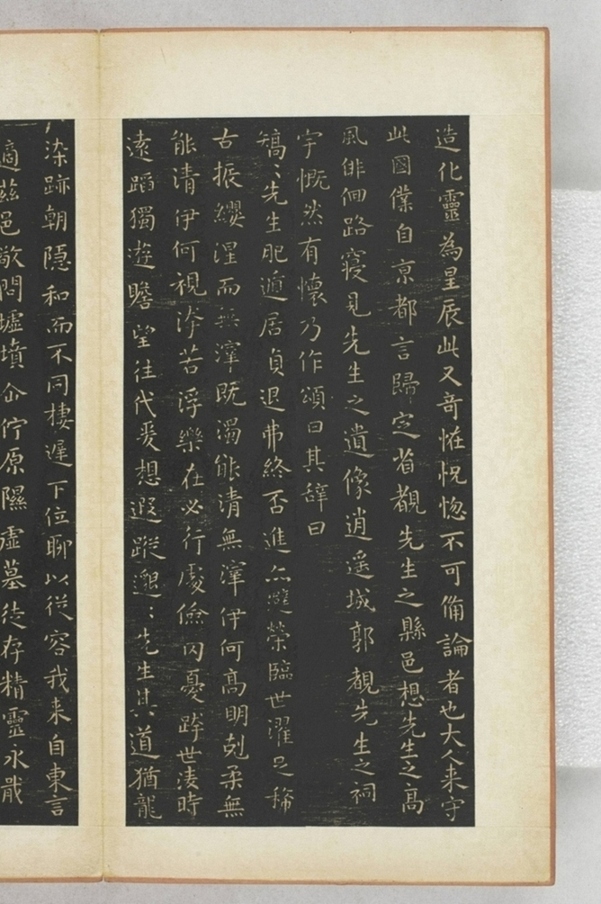 造化靈為星辰此又奇怪怳惚不可備論者也大人来守
此國僕自京都言歸定省覩先生之縣邑想先生之高
風俳佪路寝見先生之遺像逍遥城郭覩先生之祠
宇慨然有懷乃作頌曰其辞曰
矯〻先生肥遁居貞退弗終否進亦避榮臨世濯足稀
古振纓涅而無滓既濁能清無滓伊何高明剋柔無
能清伊何視洿若浮樂在必行處儉罔憂跨世凌時
遠蹈獨遊瞻望往代爰想遐蹤邈〻先生其道猶龍
染跡朝隱和而不同棲遲下位聊以從容我来自東言
適茲邑敬問墟墳企佇原隰虛墓徒存精靈永戢